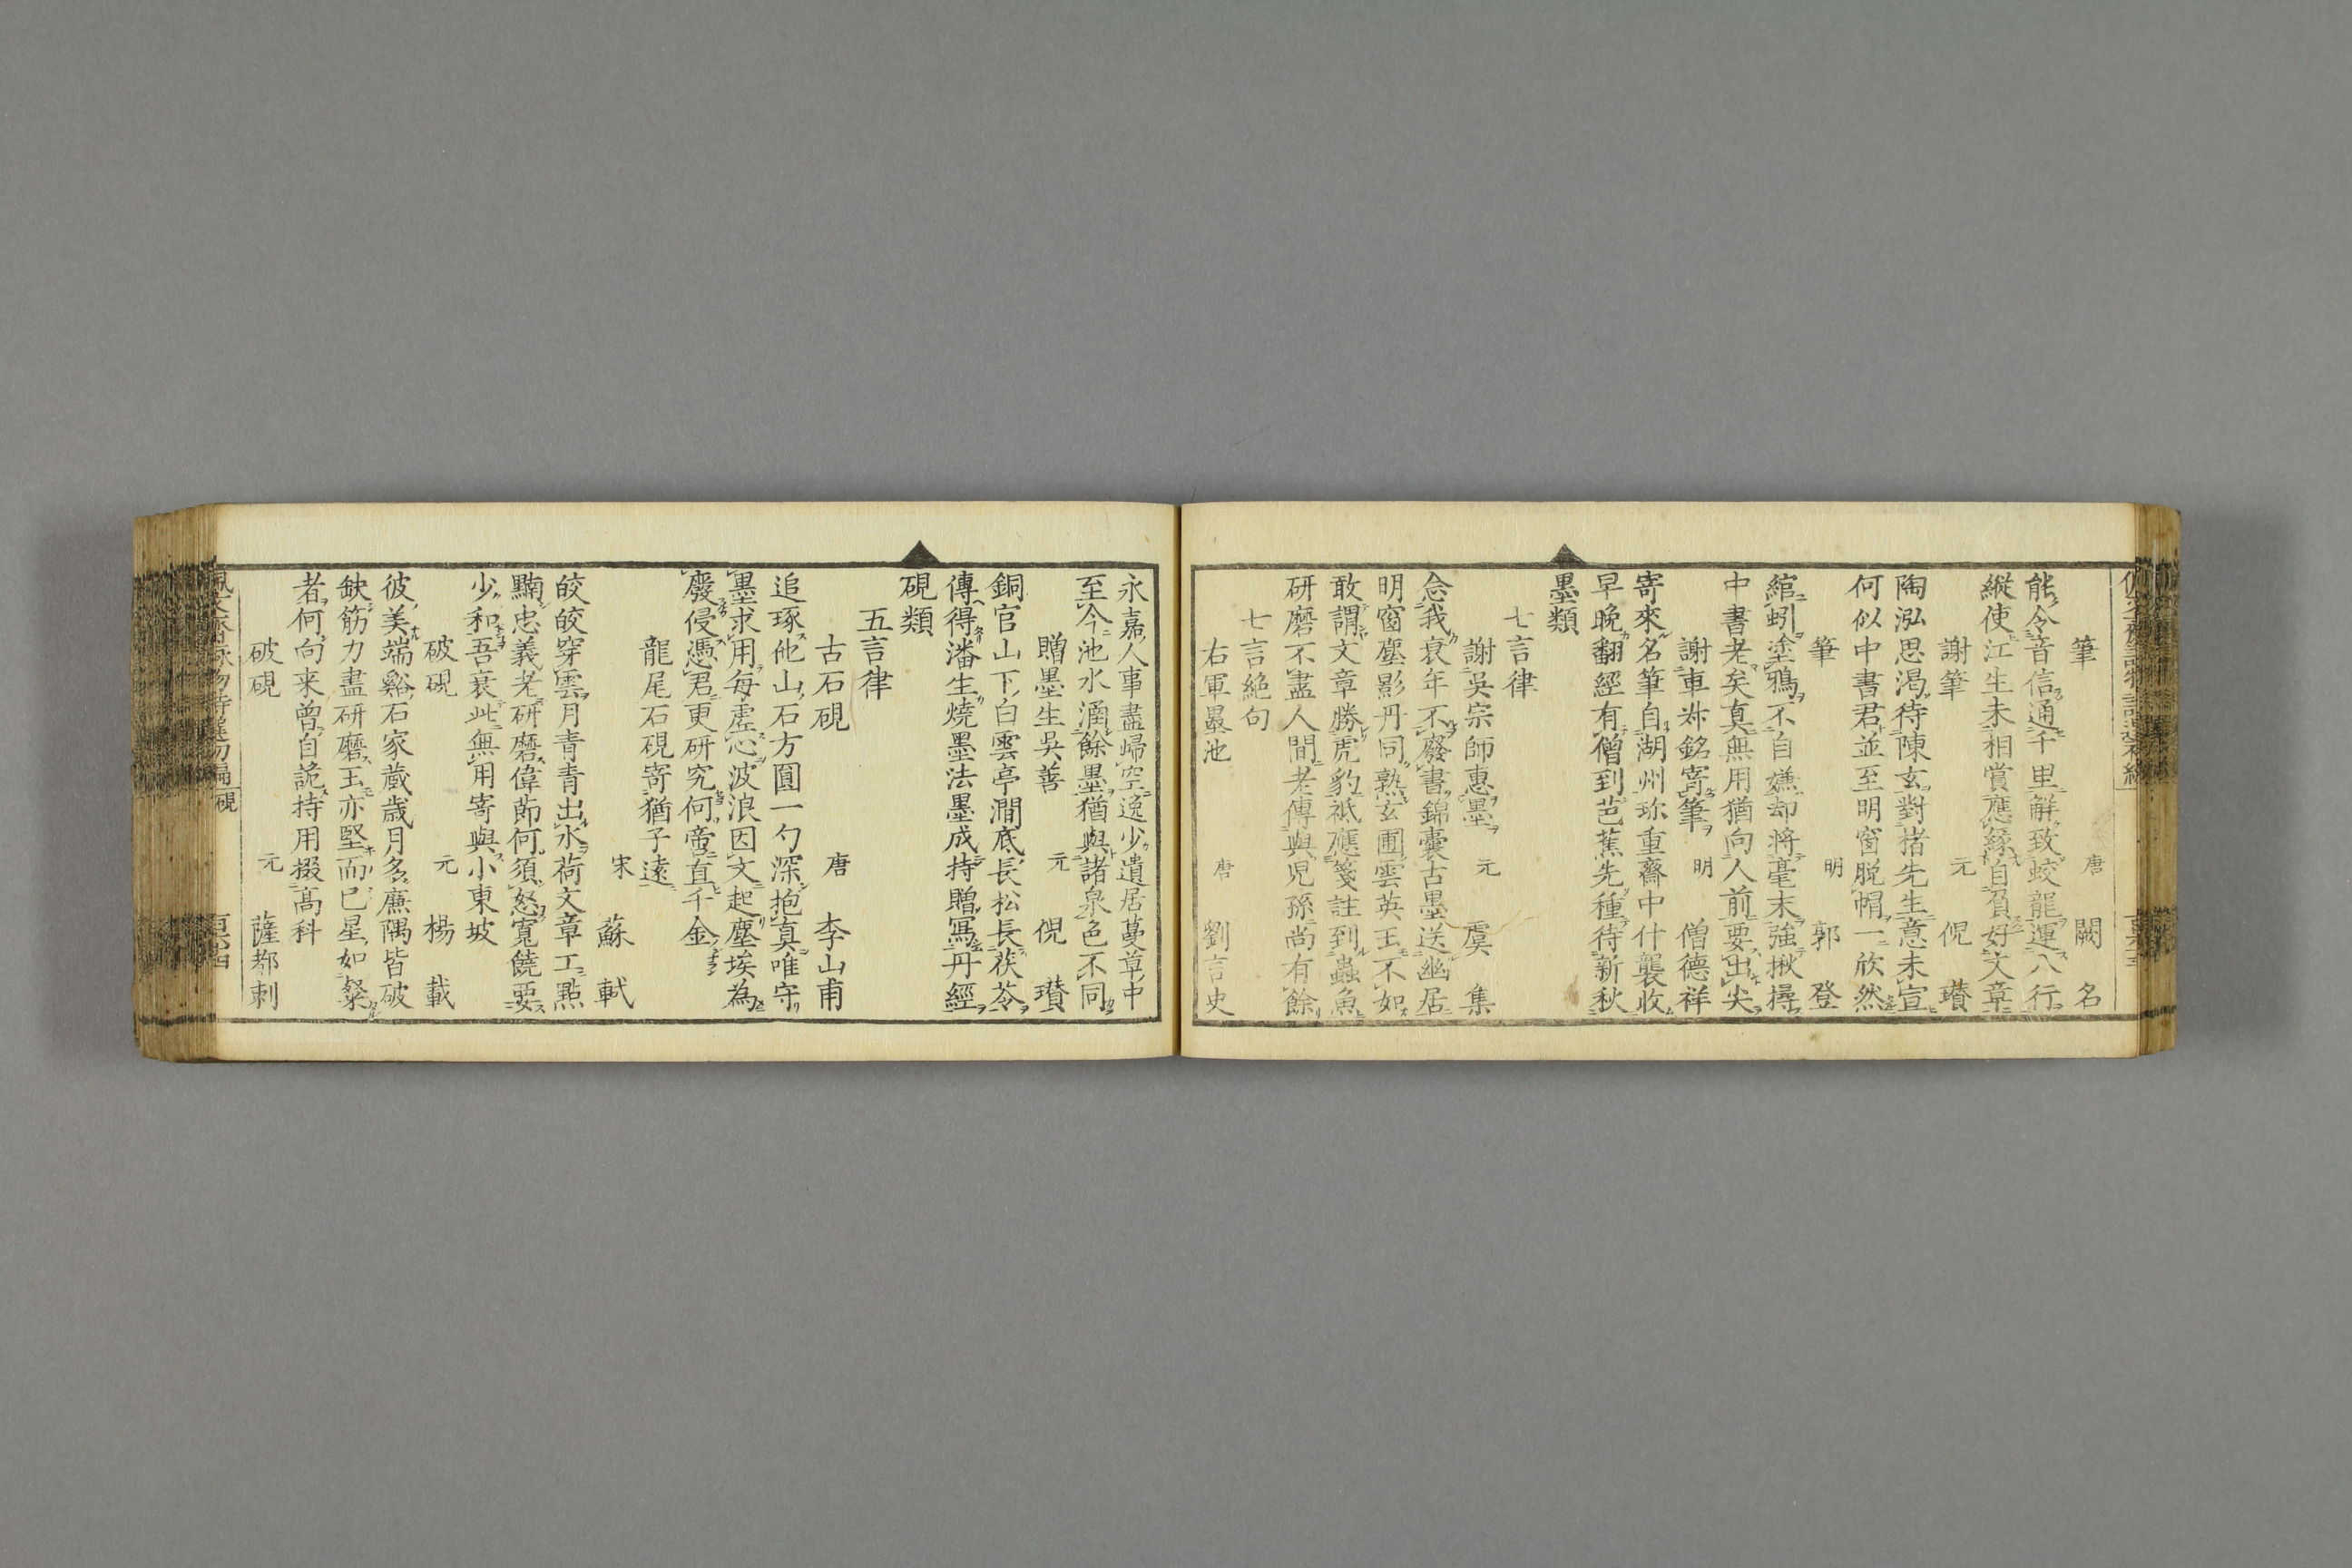 筆 唐 闕名
能令音信通千里解致蛟龍運八行
縱使江生未相賞應緣自負好文章
謝筆 元 倪瓚
陶泓思渇待陳玄對楮先生意未宣
何似中書君並至明窗脱帽一欣然
筆 明 郭登
綰蚓塗鴉不自嫌却將毫末強揪撏
中書老矣真無用猶向人前要出尖
謝車叔銘寄筆 明 僧德祥
寄來名筆自湖州珎重齋中什襲收
早晚翻經有僧到芭蕉先種待新秋
墨類
七言律
謝吳宗師惠墨 元 虞集
念我衰年不廢書錦囊古墨送幽居
明窗塵影丹同熟玄圃雲英玉不如
敢謂文章勝虎豹祇應箋註到蟲魚
研磨不盡人間老傳與児孫尚有餘
七言絶句
右軍墨池 唐 劉言史
永嘉人事盡歸空逸少遺居蔓草中
至今池水涵餘墨猶與諸泉色不同
贈墨生吳善 元 倪瓚
銅官山下白雲亭澗底長松長茯苓
傳得潘生燒墨法墨成持贈寫丹經
硯類
五言律
古石硯 唐 李山甫
追琢他山石方圓一勺深抱真唯守
墨求用每虛心波浪因文起塵埃為
廢侵憑君更研究何啻直千金
龍尾石硯寄猶子遠
宋 蘇軾
皎皎穿雲月青青出水荷文章工點
黝忠義老研磨偉節何須怒寬饒要
少和吾衰此無用寄與小東坡
破硯 元 楊載
彼美端谿石家藏歲月多廉隅皆破
缺筋力盡研磨玉亦堅而已星如粲
者何向来曾自詭持用掇高科
破硯 元 薩都剌
硯